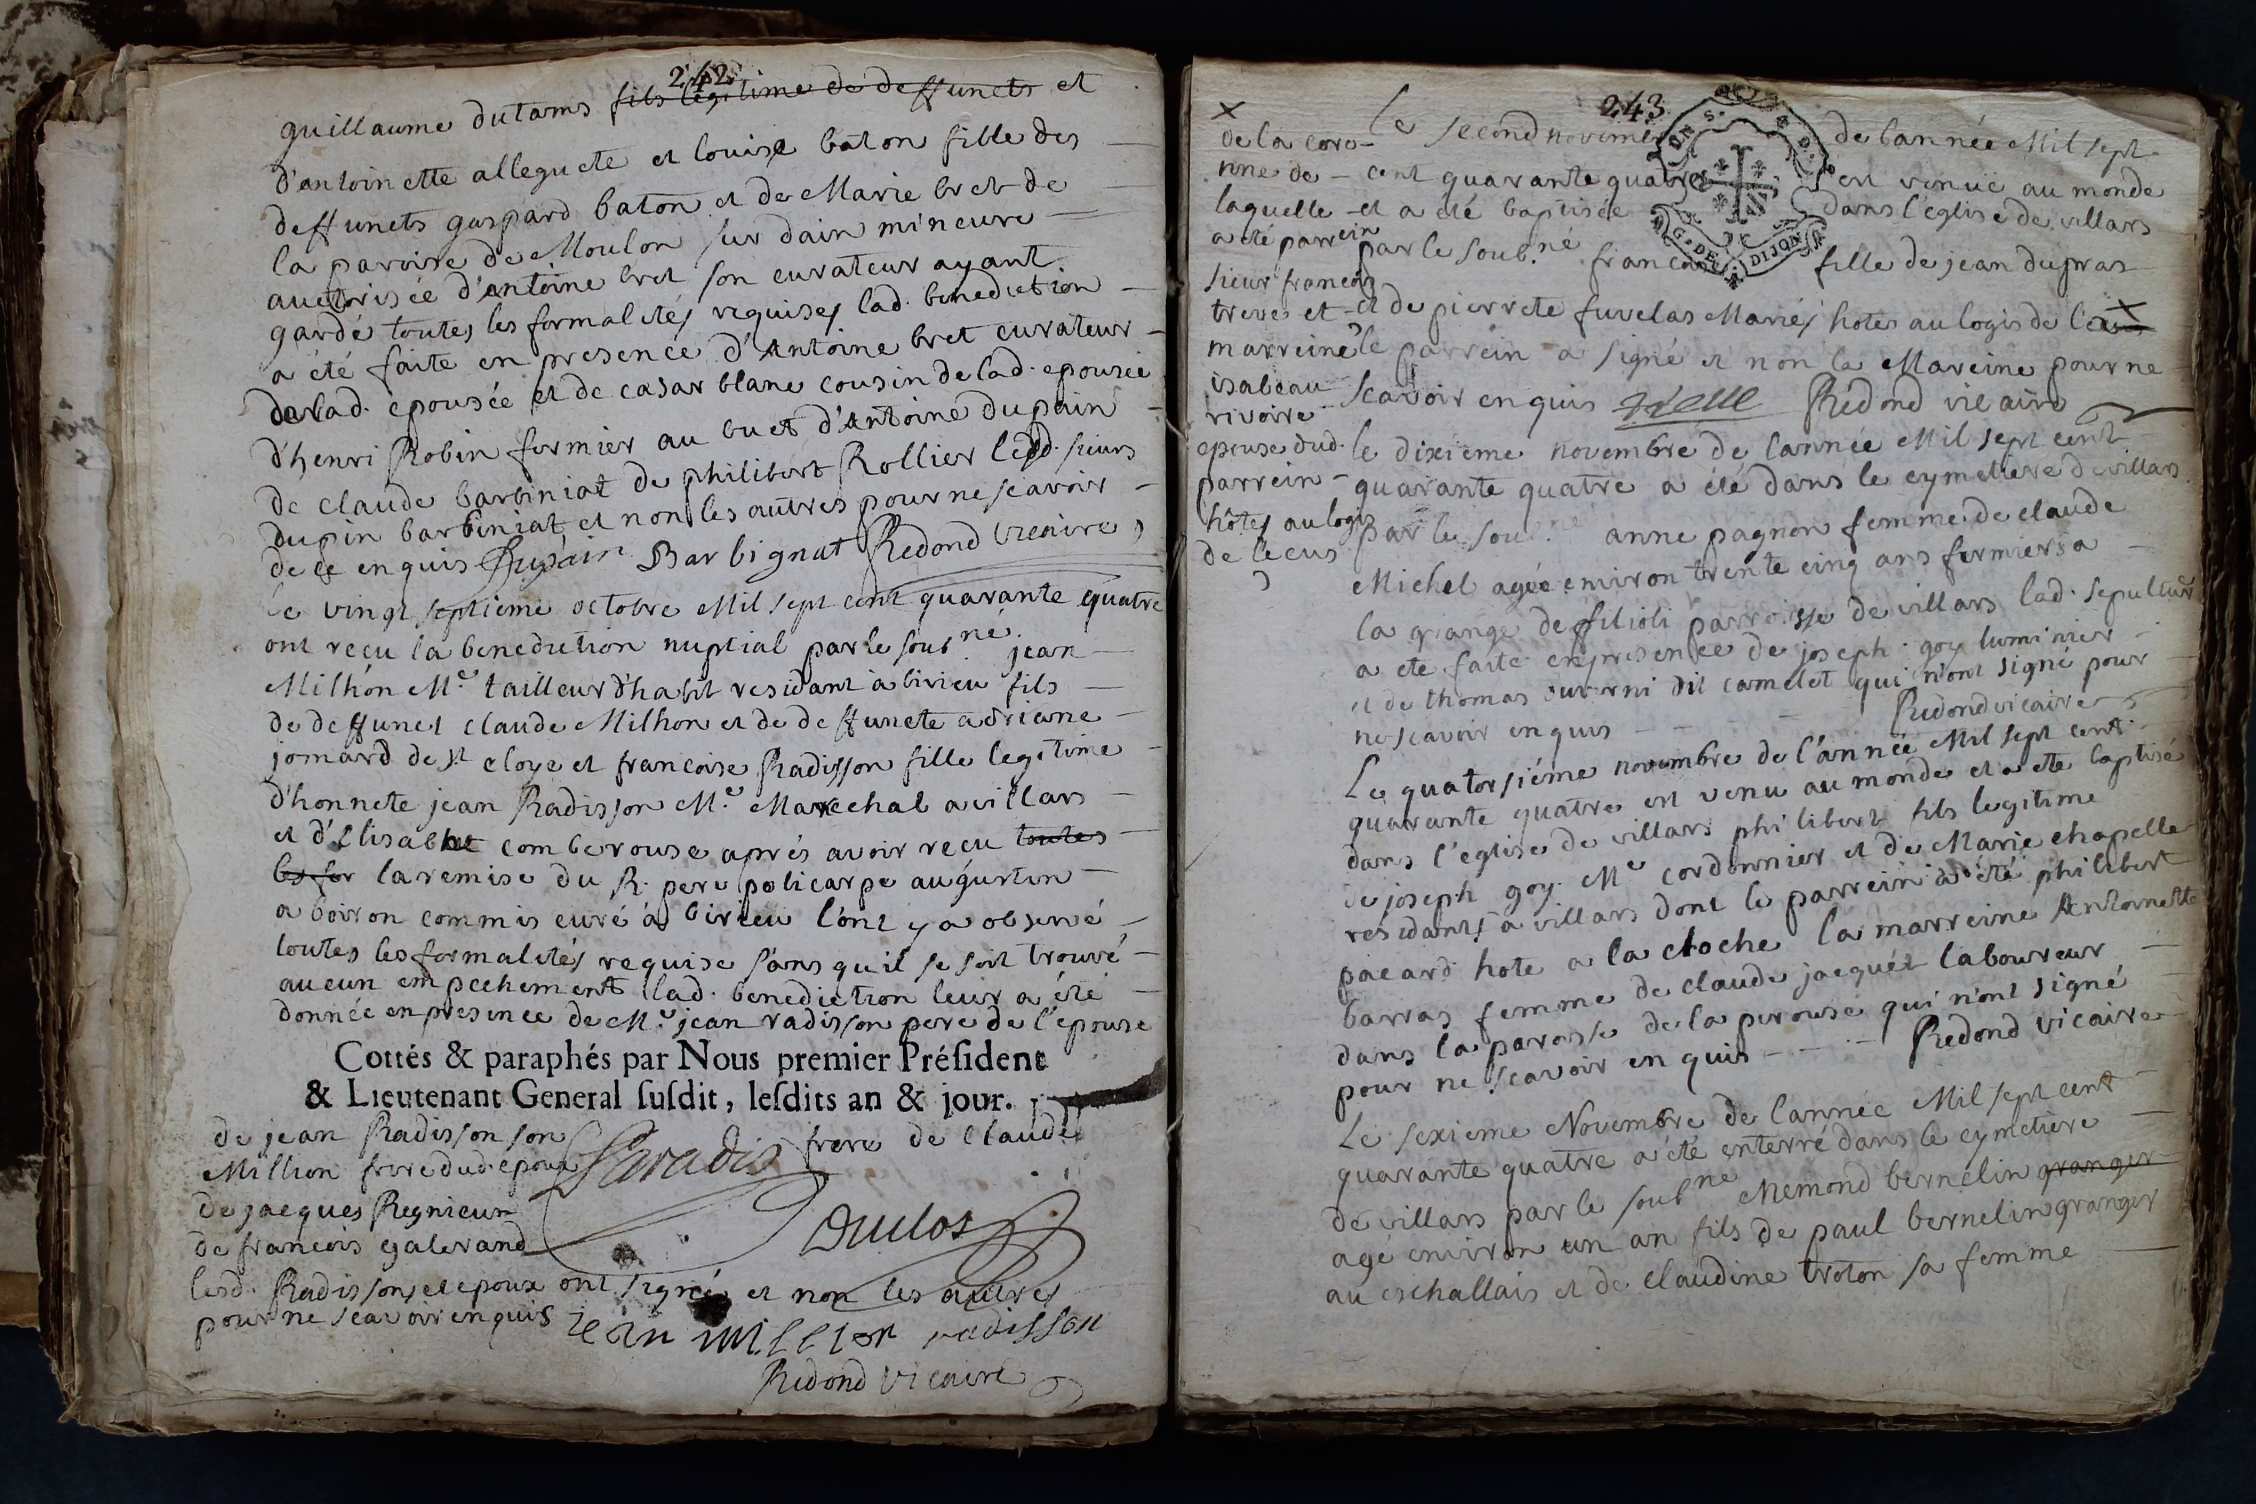 242
guillaume dutams fils legitime de deffunets et
d'antoinette alleguete et louise baton fille des
deffunets gaspard baton et de Marie bret de
la paroise de Moulon sur dain mineure
auctorisée d'antoine bret son curateur ayant
gardé toutes les formalités requises lad. benediction
a été faite en presence d'Antoine bret curateur
de lad. epousée et de casar blanc cousin de lad. epousée
d'henri Robin fermier au buet d'Antoine dupain
de claude barbiniat de philibert Rollier lesd. sieurs
dupin barbiniat et non les autres pour ne scavoir
de ce enquis Dupain Barbignat Redond vicaire
Le vingt septieme octobre Mil sept cent quarante quatre
ont reçu la benediction nuptial par le soub.né jean
Milhon Me tailleur d'habit residant a birieu fils
de deffunct claude Milhon et de deffuncte adriane
jomard de st eloye et francoise Radisson fille legitime
d'honnete jean Radisson Me Marechal a villars
et d'Elisabet comberouse aprés avoir reçu toutes
les for la remise du R. pere policarpe augustin
a boiron commis curé à birieu l'ont y a observé
toutes les formalités requise sans qu'il se soit trouvé
aucun empechement lad. benediction leur a été
donnée en presence de Me jean radisson pere de l'epouse
Cottés & paraphés par Nous premier Préſident
& Lieutenant General ſuſdit, leſdits an & jour.
de jean Radisson son frere de Claude
Million frere dud. epoux Paradis
de jacques Regnieur Duclos
de francois galerand
lesd. Radisson et epoux ont signé et non les autres
pour ne scavoir enquis jean million radisson
Redond vicaire
243
Le second novembre de l'année Mil sept
cent quarante quatre est venue au monde
et a été baptisée dans l'eglise de villars
par le soub.né francoise fille de jean dupras
et de pierrete fuvelas Mariés hotes au logis de l'ecu X
le parrein a signé et non la Mareine pour ne
scavoir enquis treue Redond vicaire
X
de la coro-
nne de
laquelle
a été parrein
sieur francois
treve et
marreine
isabeau
rivoire
epouse dud.
parrein
hôtes au logis
de lecus
le dixieme novembre de l'année Mil sept cent
quarante quatre a été dans le cymetiere de villars
par le soub.né anne pagnon femme de claude
Michel agée environ trente cinq ans fermiers a
la grange de filioli parroisse de villars lad. sepulture
a ete faite en presence de joseph goy luminier
et de thomas surrni dit camelet qui n'ont signé pour
ne scavoir enquis Redond vicaire
Le quatorsiéme novembre de l'année Mil sept cent
quarante quatre est venu au monde et a ete baptisé
dans l'eglise de villars philibert fils legitime
de joseph goy Me cordonnier et de Marie chapelle
residants a villars dont le parrein a été philibert
pacard hote a la cloche la marreine Antoinette
barras femme de claude jacquét laboureur
dans la paroisse de la perouse qui n'ont signé
pour ne scavoir enquis Redond vicaire
Le sexieme Novembre de l'année Mil sept cent
quarante quatre a été enterré dans le cymetiere
de villars par le soub.né Memond bernelin granger
agé environ un an fils de paul bernelin granger
au eschallais et de Claudine troton sa femme
G. DE DIJON